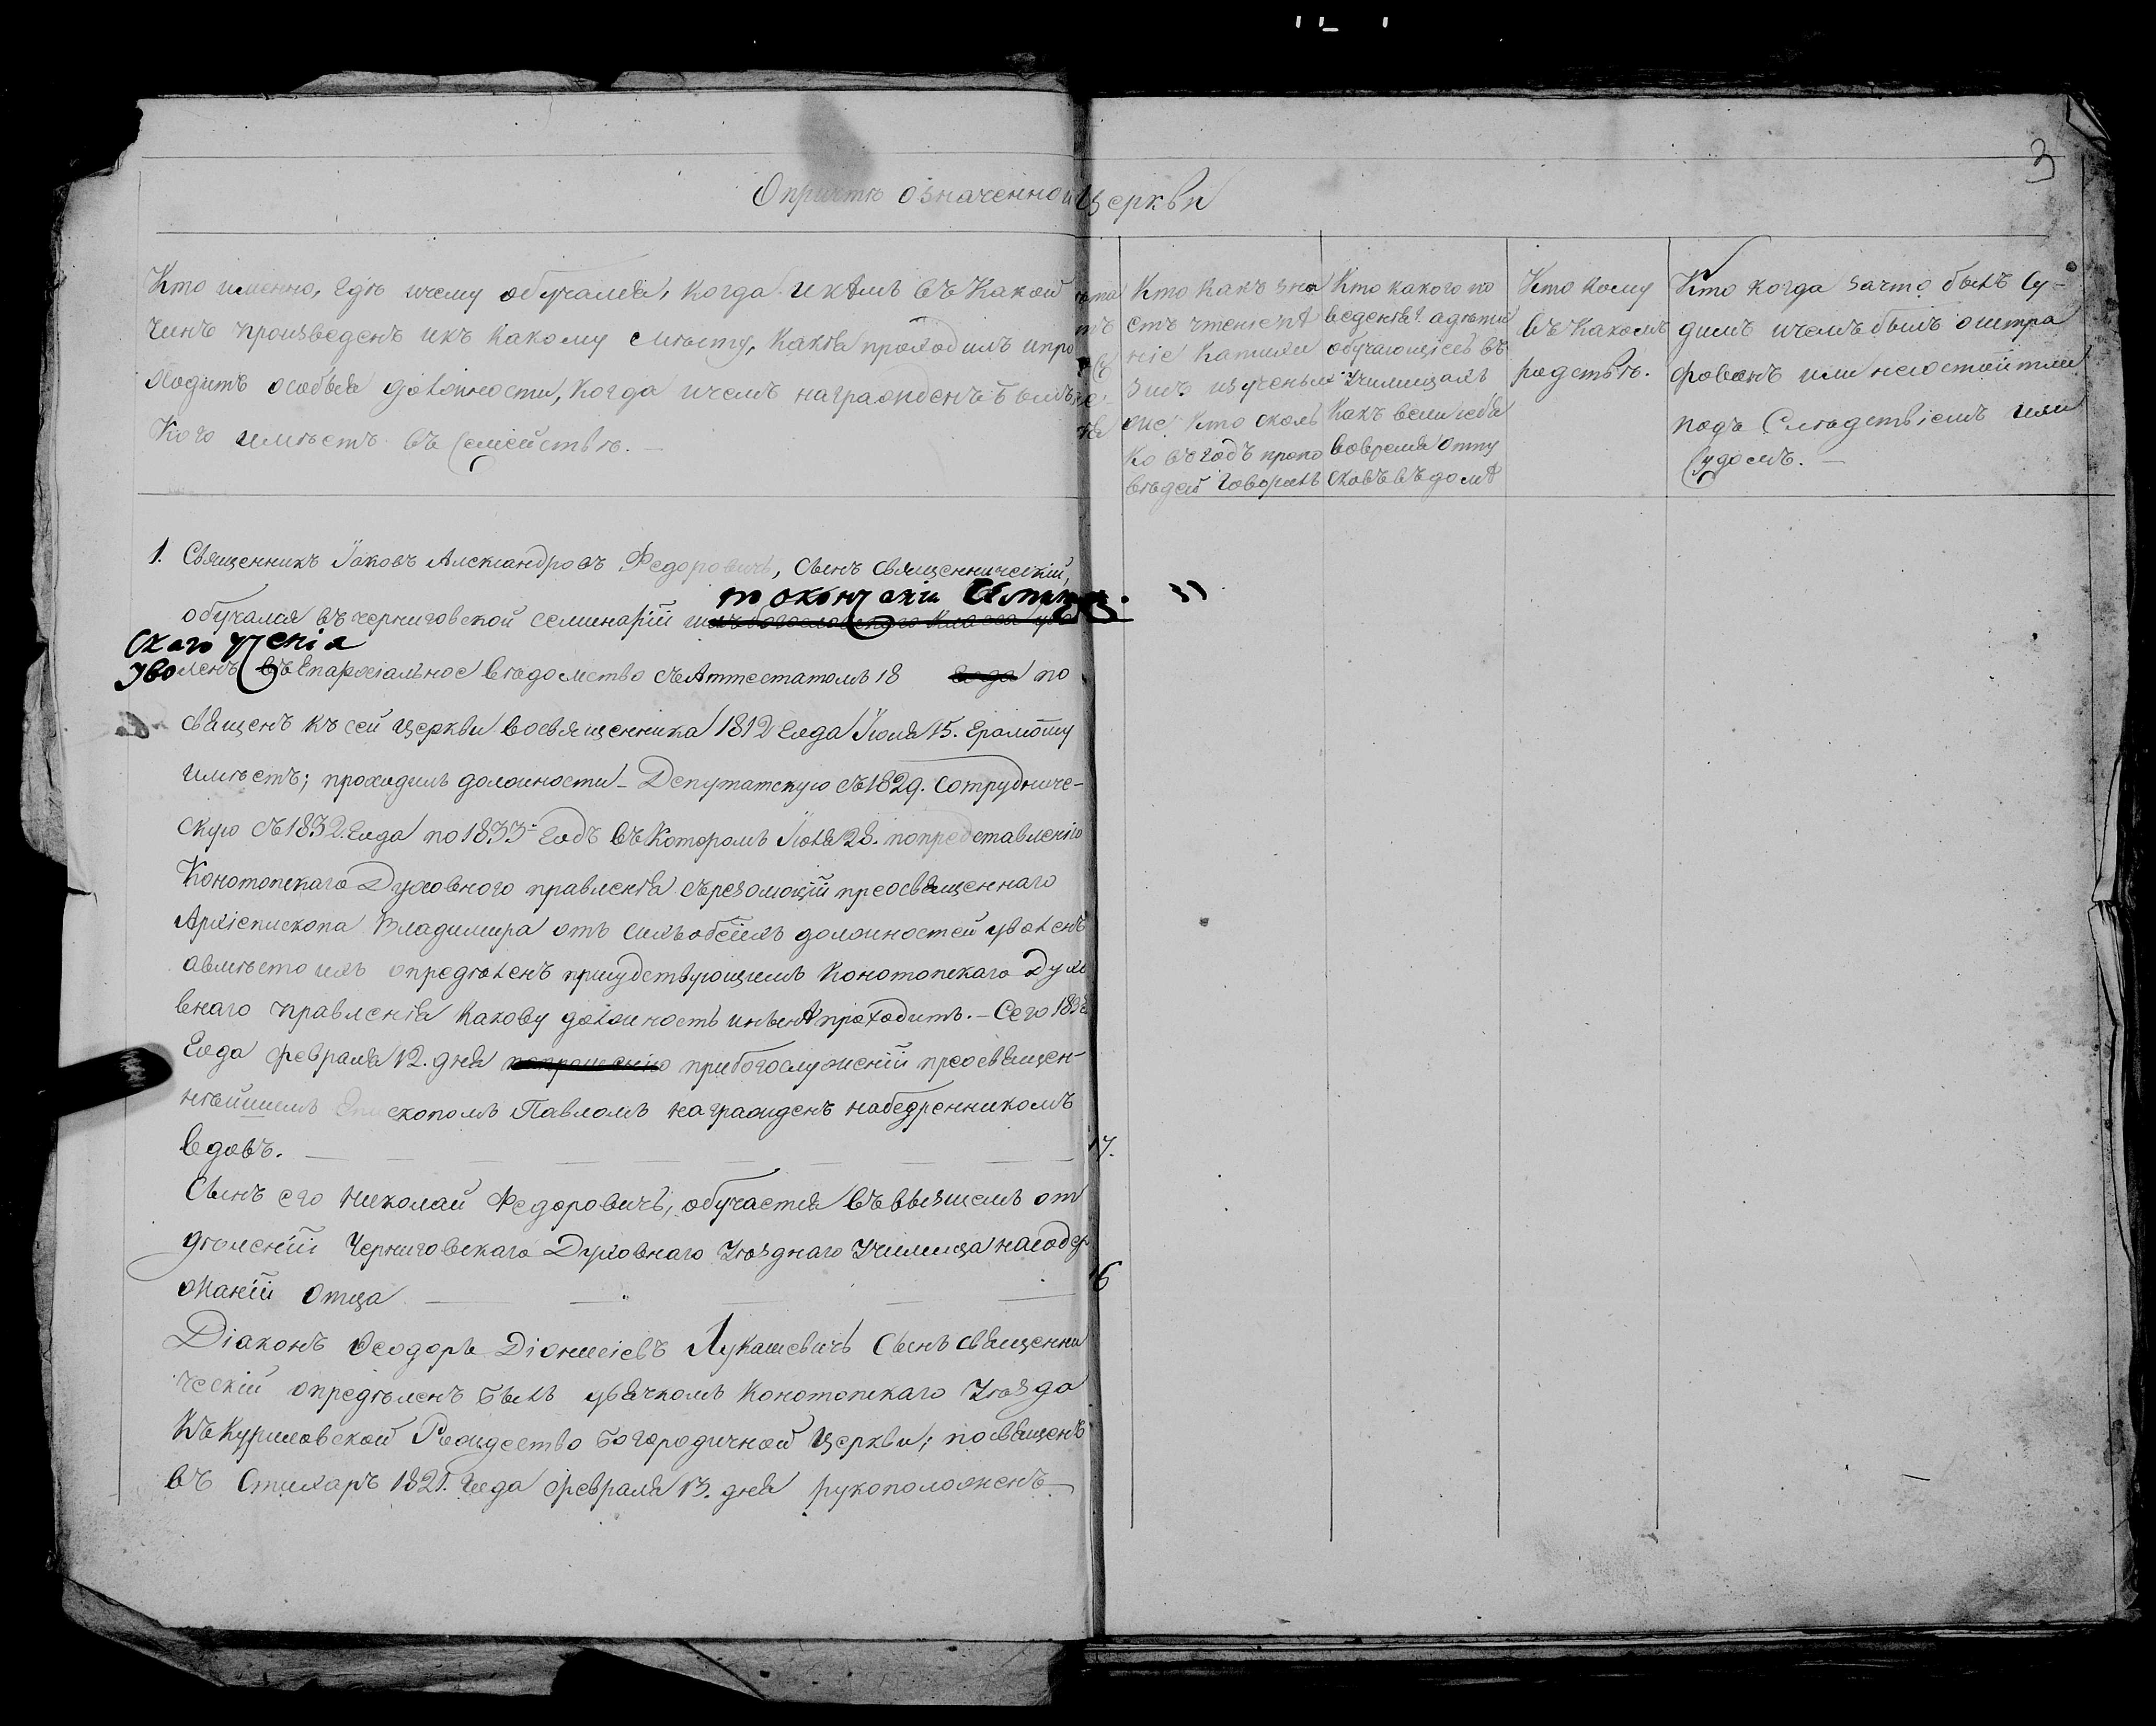 3
О причтѣ означенной Церкви
Кто именно, гдѣ и чему обучался, когда и кѣмъ въ какой
чинъ произведенъ и къ какому мѣсту, какія проходилъ и про
ходитъ особыя должности, когда и чемъ награжденъ и
кого имѣетъ въ семействѣ. —
Кто какъ зна
етъ чтеніе пѣ
ніе катихи
зисъ
кто сколь
ко въ годъ пропо
вѣдей говорилъ
Кто какого по
веденія а дѣти
обучающіесь въ
училищахъ
какъ вели себя
вовремя отпу
сковъ въ домѣ
Кто кому
въ какомъ
родствѣ.
Кто когда за что былъ су-
димъ и чемъ былъ оштра
фованъ или несостоитъ ли
подъ слѣдствіемъ или
судомъ. —
1. Священникъ Іаковъ Александровъ Федоровичъ, сынъ священническій,
по окончаніи
обучался въ черниговской семинаріи
скаго ученія
уволенъ въ Епархіальное вѣдомство съ Аттестатомъ 18 года по
священъ къ сей Церкви во священника 1812 года Іюля 15. грамоту
имѣетъ; проходилъ должности – Депутатскую съ 1829. сотрудниче-
скую съ 1832. года по 1833й годъ въ которомъ 28. по представленію
Конотопскаго Духовнаго правленія съ резолюціи преосвященнаго
Архіепископа Владимира отъ сихъ обѣихъ должностей уволенъ
а вмѣсто ихъ опредѣленъ присудствующимъ Конотопскаго Духо
внаго правленія какову должность и нынѣ проходитъ. – Сего
года февраля 12. дня при богослуженіи преосвящен-
нѣйшимъ Епископомъ Павломъ награжденъ набедренникомъ
вдовъ. — 17.
Сынъ его Николай Федоровичъ, обучается въ высшемъ от
дѣленіи Черниговскаго Духовнаго Уѣзднаго Училища на содер
жаніи отца — 16
Діаконъ Феодоръ Діонисіевъ Лукашевичъ сынъ священни
ческій опредѣленъ былъ дьячкомъ Конотопскаго Уѣзда
къ Куриловской Рождество Богородичной Церкви; посвященъ
въ Стихарь 1821. года февраля 13. дня рукоположенъ